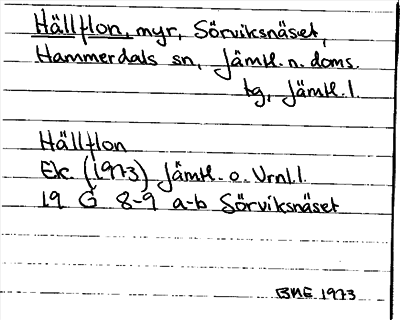 Hällflon, myr, Sörviksnäset,
Hammerdals sn, Jämtl. n. doms.
tg, Jämtl. l.
Hällflon
Ek. (1973) Jämtl. o. Vrnl. l.
19 G 8-9 a-b Sörviksnäset
BME 1973